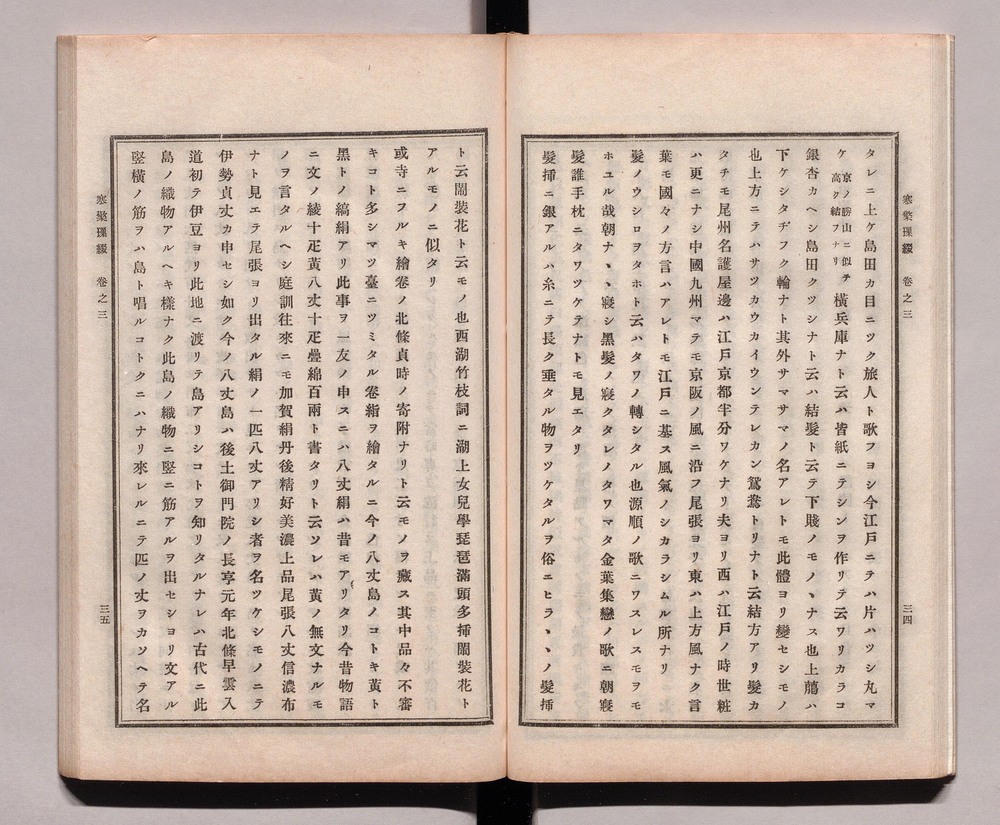 寒檠璅綴 卷之三 三四
タレニ上ケ島田カ目ニツク旅人ト歌フヨシ今江戸ニテハ片ハツシ丸マ
ケ京ノ勝山ニ似テ高ク結フナリ横兵庫ナト云ハ皆紙ニテシンヲ作リテ云ワリカラコ
銀杏カヘシ島田クツシナト云ハ結髮ト云テ下賤ノモノヽナス也上﨟ハ
下ケシタヂフク輪ナト其外サマサマノ名アレトモ此體ヨリ變セシモノ
也上方ニテハサツカウカイウンテレカン鴛鴦トリナト云結方アリ髮カ
タチモ尾州名護屋邊ハ江戸京都半分ワケナリ夫ヨリ西ハ江戸ノ時世粧
ハ更ニナシ中國九州マテモ京阪ノ風ニ沿フ尾張ヨリ東ハ上方風ナク言
葉モ國々ノ方言ハアレトモ江戸ニ基ス風氣ノシカラシムル所ナリ
髮ノウシロヲタホト云ハタワノ轉シタル也源順ノ歌ニワスレスモヲモ
ホユル哉朝ナヽヽ寢シ黑髮ノ寢クタレノタワマタ金葉集戀ノ歌ニ朝寢
髮誰手枕ニタワツケテナトモ見エタリ
髮揷ニ銀アルハ糸ニテ長ク垂タル物ヲツケタルヲ俗ニヒラヽヽノ髮揷
ト云閙裝花ト云モノ也西湖竹枝詞ニ湖上女兒學琵琶滿頭多揷閙裝花ト
アルモノニ似タリ
或寺ニフルキ繪卷ノ北條貞時ノ寄附ナリト云モノヲ藏ス其中品々不審
キコト多シマツ臺ニツミタル卷絹ヲ繪タルニ今ノ八丈島ノコトキ黃ト
黑トノ縞絹アリ此事ヲ一友ノ申スニハ八丈絹ハ昔モアリタリ今昔物語
ニ文ノ綾十疋黃八丈十疋疊綿百兩ト書タリト云ソレハ黃ノ無文ナルモ
ノヲ言タルヘシ庭訓往來ニモ加賀絹丹後精好美濃上品尾張八丈信濃布
ナト見エテ尾張ヨリ出タル絹ノ一匹八丈アリシ者ヲ名ツケシモノニテ
伊勢貞丈カ申セシ如ク今ノ八丈島ハ後土御門院ノ長享元年北條早雲入
道初テ伊豆ヨリ此地ニ渡リテ島アリシコトヲ知リタルナレハ古代ニ此
島ノ織物アルヘキ樣ナク此島ノ織物ニ竪ニ筋アルヲ出セシヨリ文アル
竪橫ノ筋ヲハ島ト唱ルコトクニハナリ來レルニテ匹ノ丈ヲカソヘテ名
寒檠璅綴 卷之三 三五